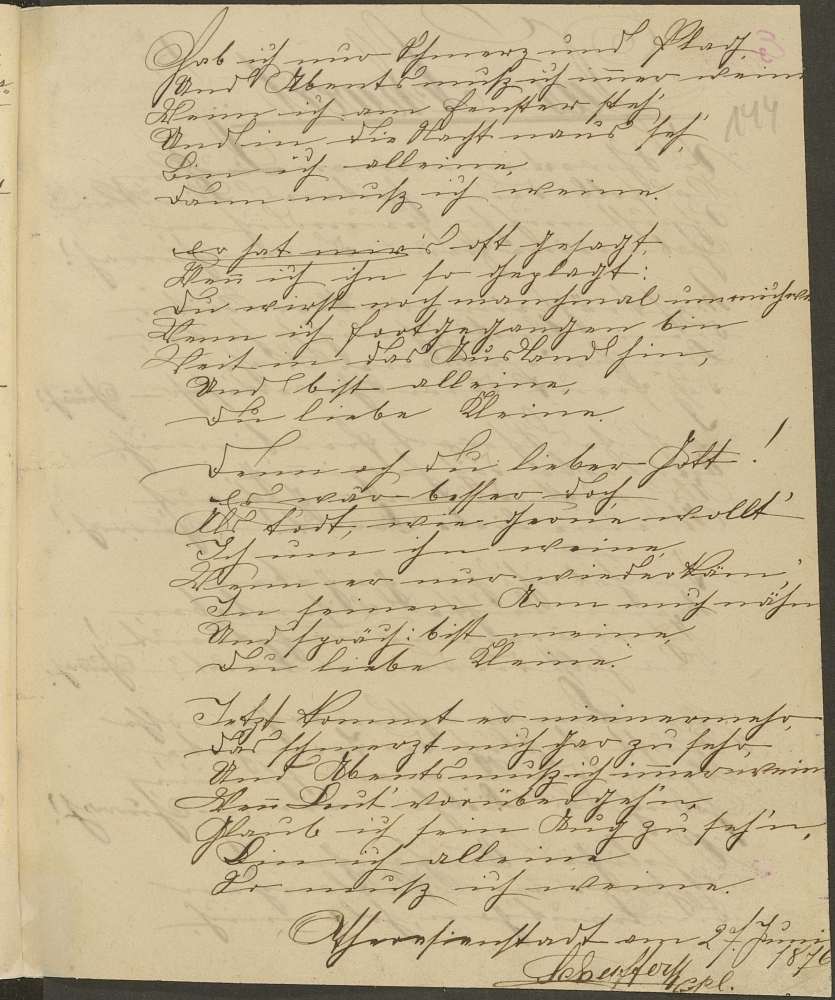 Hab ich nur Schmerz und Plag
Und Abents muß ich im̄er weine
Wenn ich am Fenster steh,
Und in die Nacht naus seh,
Bin ich alleine,
Dann muß ich weine.
Er hat mir's oft gesagt,
Wen̄ ich ihn so geplagt:
Du wirst noch manchmal um mich
Wenn ich fortgegangen bin
Weit in das Ausland hin,
Und bist alleine,
Du liebe Kleine.
Denn ach du lieber Gott!
Es wär besser doch
Als todt, wie gerne wollt'
Ich um ihn weine,
Wenn er nur wiederkäm,
In seinen Arm mich nähm
Und spräch: bist meine,
Du liebe Kleine.
Jetzt kommt er nimmermehr,
Das schmerzt mich gar zu sehr,
Und Abents muß ich im̄er weine
Wen̄ Leut' vorübergeh'n,
Glaub ich sein Aug zu seh'n,
Bin ich alleine
So muß ich weine.
Theresienstadt am 27/Juni
1876
144